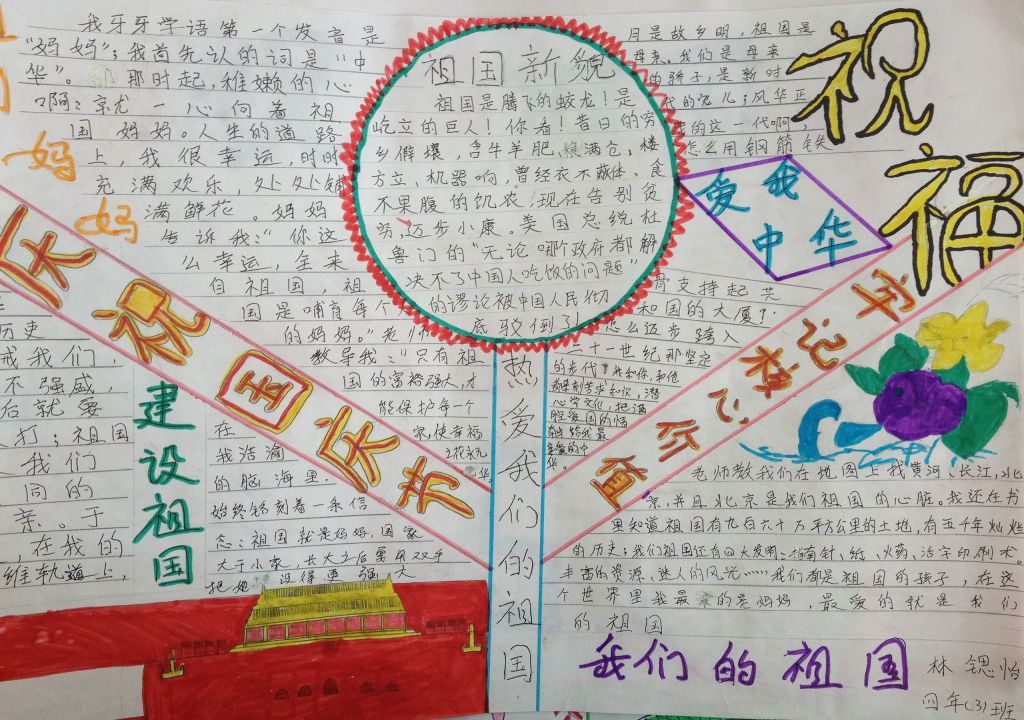 我牙牙学语第一个发音是
"妈妈"；我首先认的词是"中
华"。 那时起，稚嫩的心
啊：京尤一心向着祖
国妈妈。人生的道路
上，我很幸运，时时
充满欢乐，处处铺
满鲜花。妈妈
告诉我："你这
么幸运，全来
自祖国，祖
国是哺育每个
的妈妈。"老师
教导我："只有祖
国的富裕强大，才
能保护每一个
家，使幸福
妈
妈
庆祝国庆节
历史
戒我们，
不强盛，
后就要
打；祖国
我们
同的
亲。于
，在我的
维轨道上，
建设祖国
在
我浩瀚
的脑海里，
始终铭刻着一条信
念：祖国就是妈妈，国家
大于小家，长大之后要用双手
把她 设得更强大
祖国新貌
祖国是腾飞的蛟龙！是
屹立的巨人！你看！昔日的穷
乡僻壤，含牛羊肥，粮满仓，楼
方立、机器响，曾经衣不蔽体，食
不果腹的饥农，现在告别贫
穷，迈步小康。美国总统杜
鲁门的"无论哪个政府都解
决不了中国人吃饭的问题"
的谬论被中国人民彻
底驳倒了！
热爱我们的祖国
月是故乡明，祖国是
母亲。我们是母亲
的骄子，是新时
代的宠儿；风华正
的这一代啊，
怎么用钢筋铁
骨支持起共
和国的大厦？
怎么迈步跨入
二十一世纪那坚定
的步代？我和你，和他
爱我中华
祝福
牢记校训心行宜
老师教我们在地图上找黄河、长江，北
京，并且北京是我们祖国的心脏。我还在书
里知道祖国有九百六十万平方公里的土地，有五千年灿烂
的历史；我们祖国还有四大发明：指南针，纸、火药、活字印刷术。
丰富的资源、迷人的风光……我们都是祖国的孩子，在这
个世界里我最 的是妈妈，最爱的就是我们
的祖国
我们的祖国
林锶怡
四年(3)班